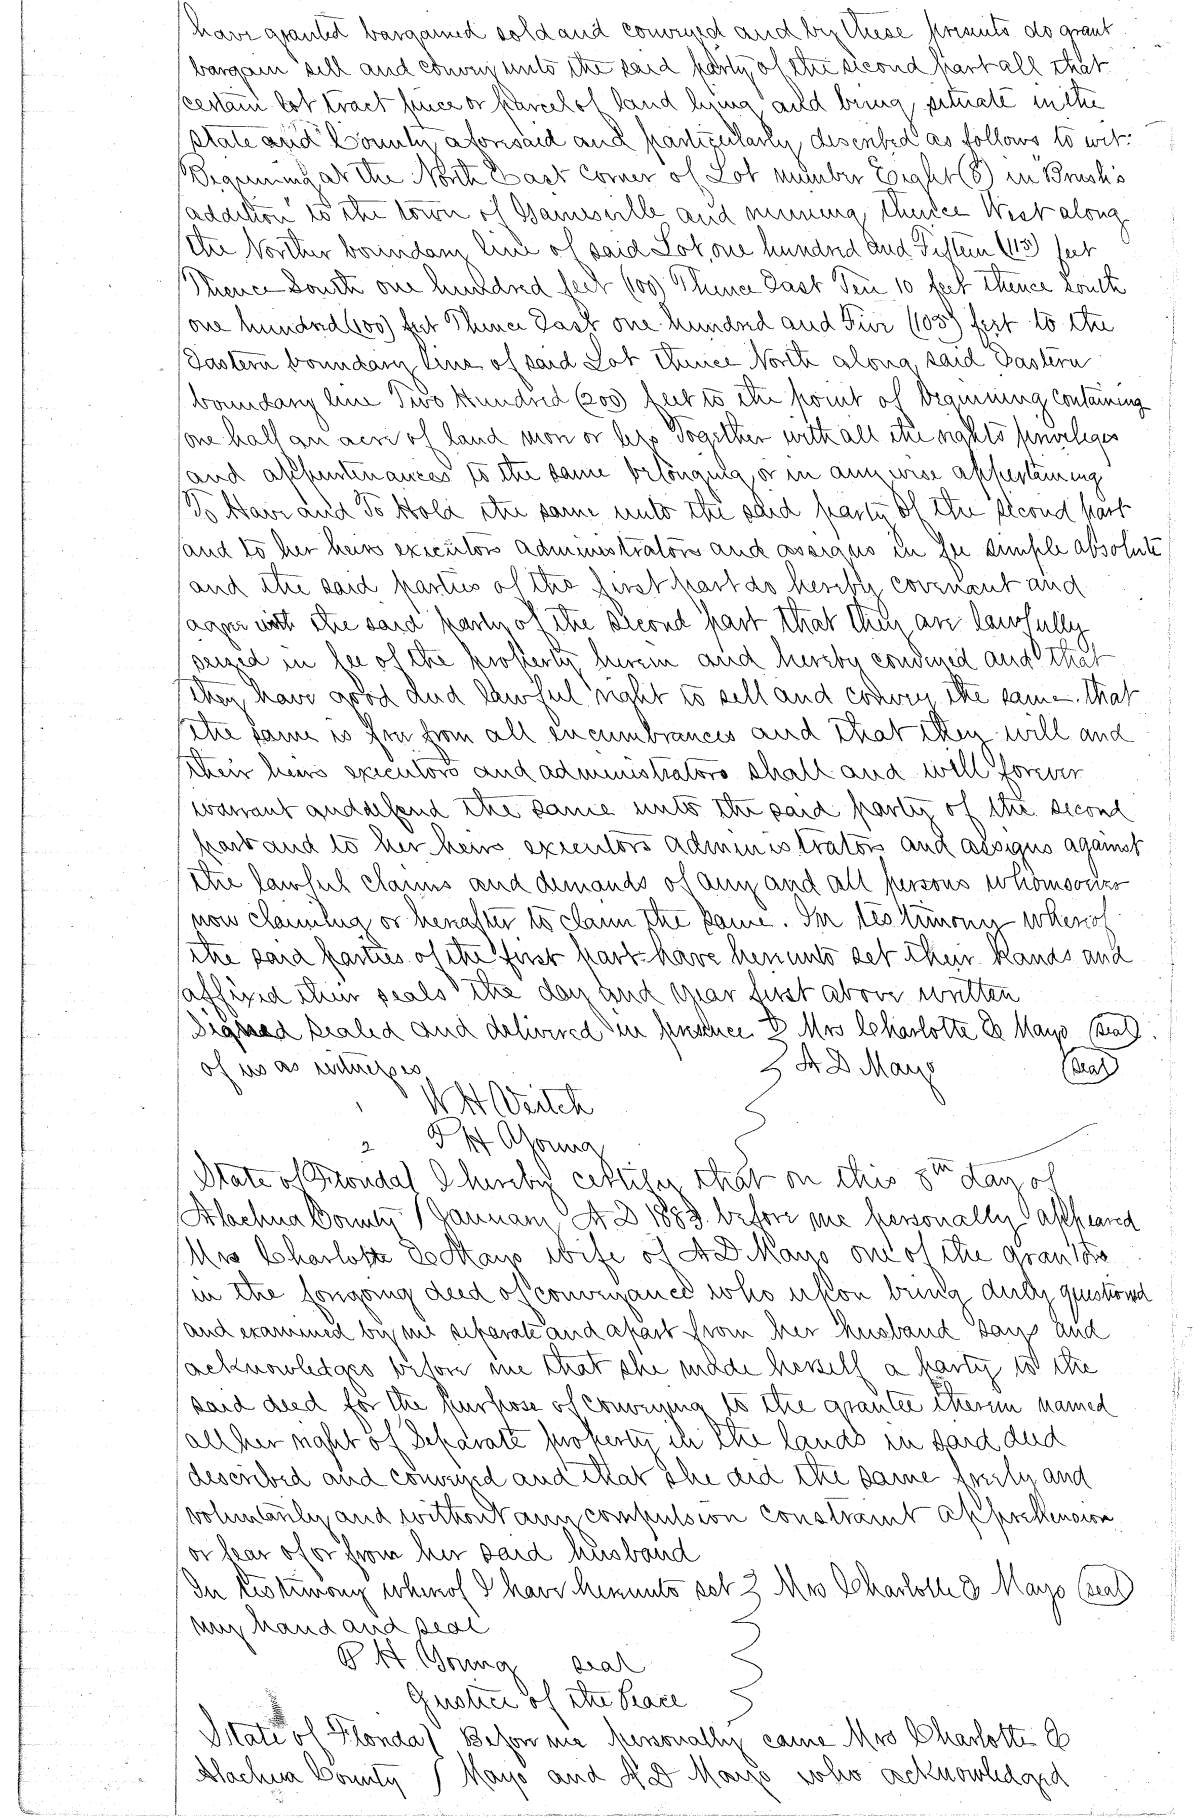 have granted bargained sold and conveyed and by these presents do grant
bargain sell and convey unto the said party of the second part all that
certain lot tract piece or parcel of land lying and being situate in the
State and County aforesaid and particularly described as follows to wit:
Beginning at the North East corner of Lot number Eight (8) in Brush's
addition to the town of Gainesville and running thence West along
the Norther boundary line of said Lot, one hundred and Fifteen (115) feet
Thence South one hundred feet (100) Thence East Ten 10 feet thence South
one hundred (100) feet Thence East one hundred and Five (105) feet to the
Eastern boundary line of said Lot thence North along said Eastern
boundary line Two Hundred (200) feet to the point of beginning containing
one half an acre of land more or less Together with all the rights privileges
and appurtenances to the same belonging or in any wise appertaining
To Have and To Hold the same unto the said party of the second part
and to her heirs executors administrators and assigns in fee simple absolute
and the said parties of the first part do hereby covenant and
agree with the said party of the second part that they are lawfully
seized in fee of the property herein and hereby conveyed and that
they have good and lawful right to sell and convey the same. that
the same is free from all encumbrances and that they will and
their heirs executors and administrators shall and will forever
warrant and defend the same unto the said party of the second
part and to her heirs executors administrators and assigns against
the lawful claims and demands of any and all persons whomsoever
now claiming or hereafter to claim the same. In testimony whereof
the said parties of the first part have hereunto set their hands and
affixed their seals the day and year first above written
Signed sealed and delivered in presence Mrs Charlotte E Mayo (seal)
of us as witnesses A D Mayo (seal)
1 W H Veitch
2 P H Young
State of Florida } I hereby certify that on this 8th day of
Alachua County } January A D 1883 before me personally appeared
Mrs Charlotte E Mayo wife of A D Mayo one of the grantors
in the foregoing deed of conveyance who upon being duly questioned
and examined by me separate and apart from her husband says and
acknowledges before me that she made herself a party to the
said deed for the purpose of conveying to the grantee therein named
all her right of Separate property in the lands in said deed
described and conveyed and that she did the same freely and
voluntarily and without any compulsion constraint apprehension
or fear of or from her said husband
In testimony whereof I have hereunto set Mrs Charlotte E Mayo (seal)
my hand and seal
P H Young seal
Justice of the Peace
State of Florida } Before me personally came Mrs Charlotte E
Alachua County } Mayo and A D Mayo who acknowledged